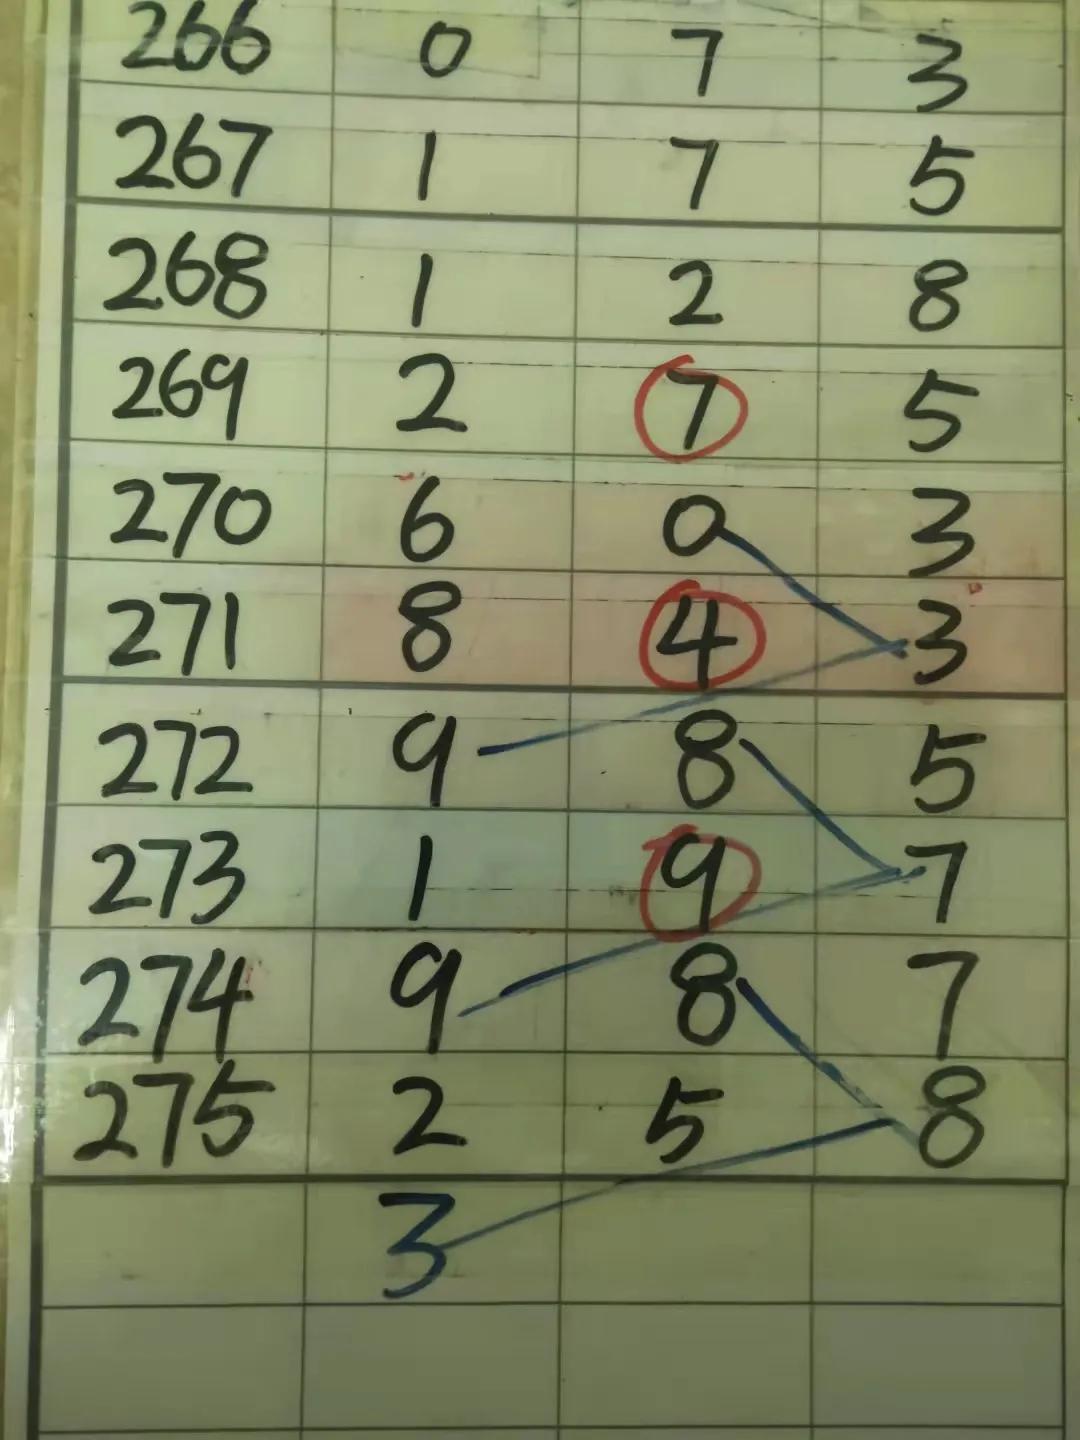 266 0 7 3
267 1 7 5
268 1 2 8
269 2 7 5
270 6 0 3
271 8 4 3
272 9 8 5
273 1 9 7
274 9 8 7
275 2 5 8
3